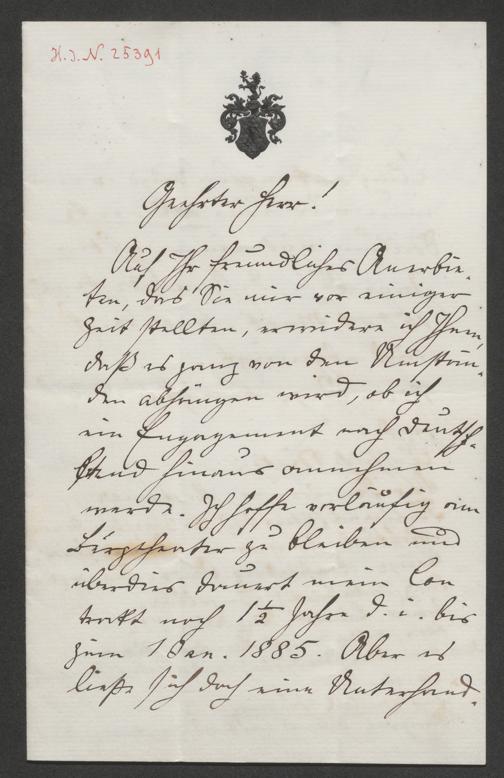 H.I.N. 25391
Geehrter Herr!
Auf Ihr freundliches Anerbie-
ten, das Sie mir vor einiger
Zeit stellten, erwidere ich Ihnen,
daß es ganz von den Umstän-
den abhängen wird, ob ich
ein Engagement nach Deutsch-
land hinaus annehmen
werde. Ich hoffe vorläufig am
Burgtheater zu bleiben und
überdies dauert mein Con
trakt noch 1½ Jahre d. i. bis
zum 1 Jan. 1885. Aber es
ließe sich doch eine Unterhand-